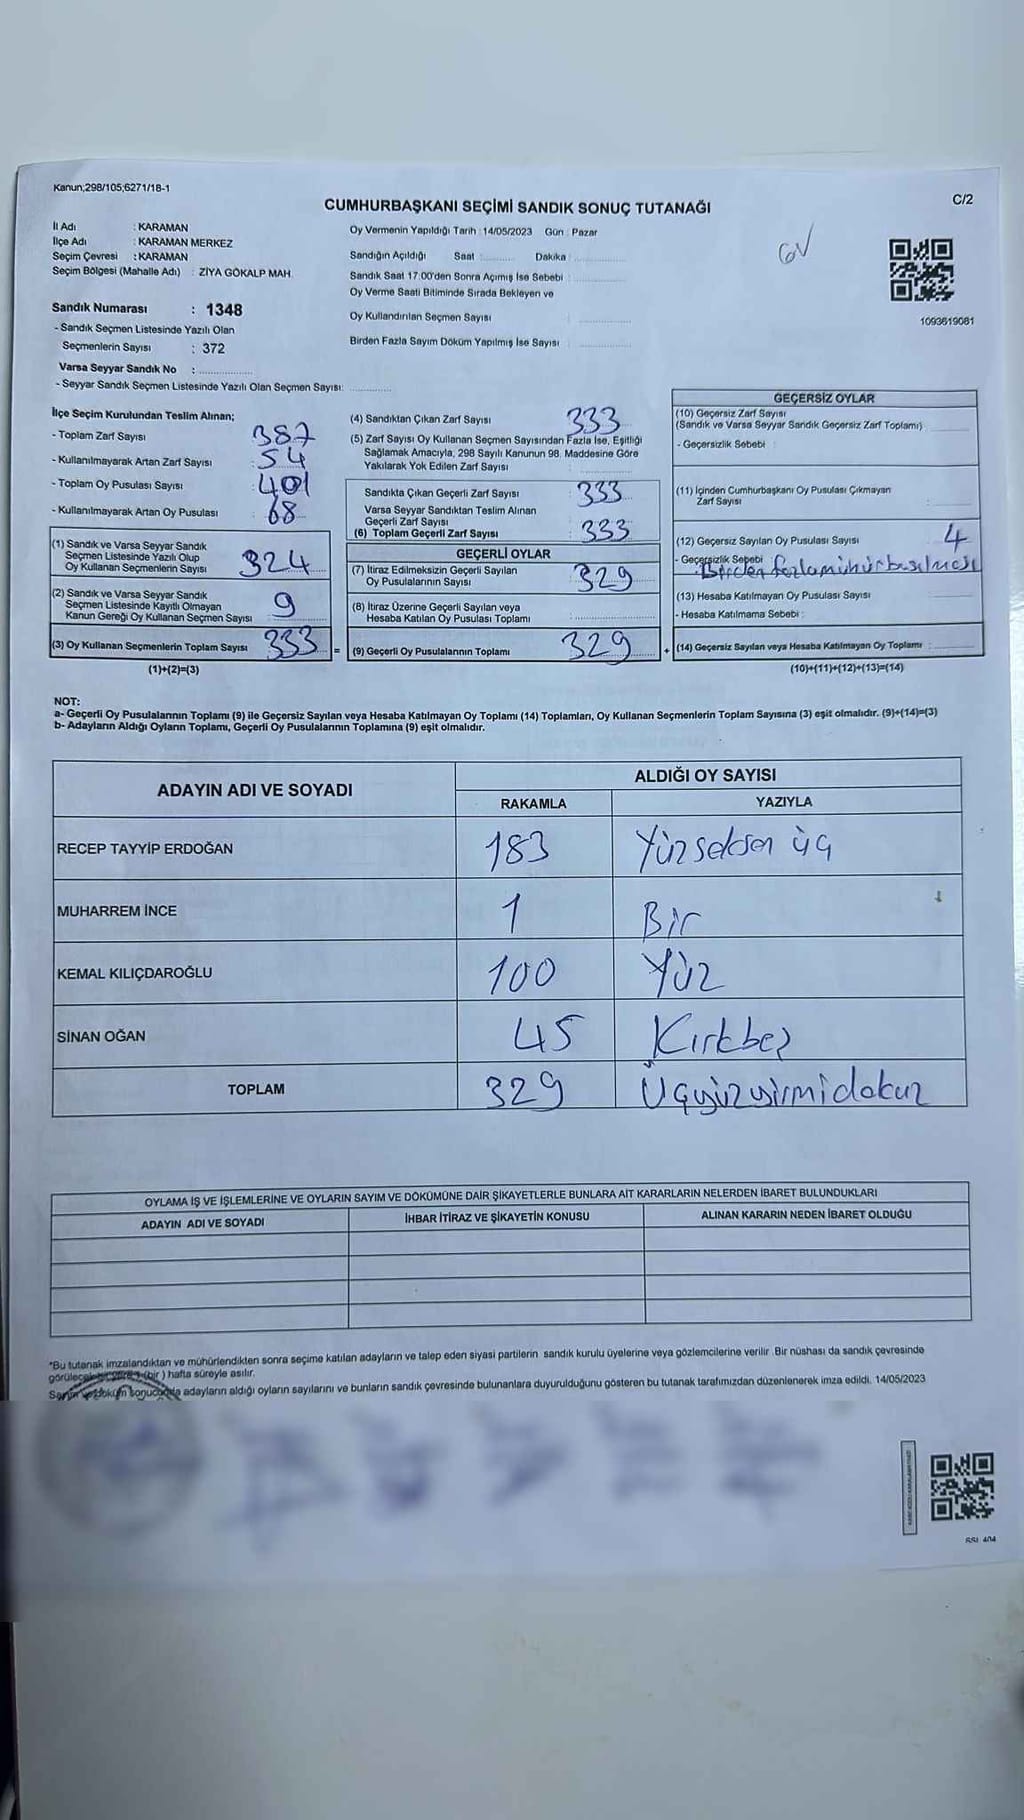 Kanun;298/105;6271/18-1
CUMHURBAŞKANI SEÇİMİ SANDIK SONUÇ TUTANAĞI
C/2
İl Adı : KARAMAN
İlçe Adı : KARAMAN MERKEZ
Seçim Çevresi : KARAMAN
Seçim Bölgesi (Mahalle Adı) : ZİYA GÖKALP MAH.
Sandık Numarası : 1348
- Sandık Seçmen Listesinde Yazılı Olan
Seçmenlerin Sayısı : 372
Varsa Seyyar Sandık No :
- Seyyar Sandık Seçmen Listesinde Yazılı Olan Seçmen Sayısı:
Oy Vermenin Yapıldığı Tarih : 14/05/2023 Gün : Pazar
Sandığın Açıldığı Saat : Dakika :
Sandık Saat 17:00'den Sonra Açımış İse Sebebi :
Oy Verme Saati Bitiminde Sırada Bekleyen ve
Oy Kullandırılan Seçmen Sayısı :
Birden Fazla Sayım Döküm Yapılmış İse Sayısı :
1093619081
İlçe Seçim Kurulundan Teslim Alınan;
- Toplam Zarf Sayısı : 387
- Kullanılmayarak Artan Zarf Sayısı : 54
- Toplam Oy Pusulası Sayısı : 401
- Kullanılmayarak Artan Oy Pusulası : 68
(1) Sandık ve Varsa Seyyar Sandık
Seçmen Listesinde Yazılı Olup
Oy Kullanan Seçmenlerin Sayısı : 324
(2) Sandık ve Varsa Seyyar Sandık
Seçmen Listesinde Kayıtlı Olmayan
Kanun Gereği Oy Kullanan Seçmen Sayısı : 9
(3) Oy Kullanan Seçmenlerin Toplam Sayısı : 333
(1)+(2)=(3)
(4) Sandıktan Çıkan Zarf Sayısı : 333
(5) Zarf Sayısı Oy Kullanan Seçmen Sayısından Fazla İse, Eşitliği
Sağlamak Amacıyla, 298 Sayılı Kanunun 98. Maddesine Göre
Yakılarak Yok Edilen Zarf Sayısı :
Sandıkta Çıkan Geçerli Zarf Sayısı : 333
Varsa Seyyar Sandıktan Teslim Alınan
Geçerli Zarf Sayısı :
(6) Toplam Geçerli Zarf Sayısı : 333
GEÇERLİ OYLAR
(7) İtiraz Edilmeksizin Geçerli Sayılan
Oy Pusulalarının Sayısı : 329
(8) İtiraz Üzerine Geçerli Sayılan veya
Hesaba Katılan Oy Pusulası Toplamı :
= (9) Geçerli Oy Pusulalarının Toplamı : 329 +
GEÇERSİZ OYLAR
(10) Geçersiz Zarf Sayısı
(Sandık ve Varsa Seyyar Sandık Geçersiz Zarf Toplamı) :
- Geçersizlik Sebebi :
(11) İçinden Cumhurbaşkanı Oy Pusulası Çıkmayan
Zarf Sayısı :
(12) Geçersiz Sayılan Oy Pusulası Sayısı : 4
- Geçersizlik Sebebi : Birden fazla mühür basılması
(13) Hesaba Katılmayan Oy Pusulası Sayısı :
- Hesaba Katılmama Sebebi :
(14) Geçersiz Sayılan veya Hesaba Katılmayan Oy Toplamı :
(10)+(11)+(12)+(13)=(14)
NOT:
a- Geçerli Oy Pusulalarının Toplamı (9) ile Geçersiz Sayılan veya Hesaba Katılmayan Oy Toplamı (14) Toplamları, Oy Kullanan Seçmenlerin Toplam Sayısına (3) eşit olmalıdır. (9)+(14)=(3)
b- Adayların Aldığı Oyların Toplamı, Geçerli Oy Pusulalarının Toplamına (9) eşit olmalıdır.
ADAYIN ADI VE SOYADI ALDIĞI OY SAYISI
RAKAMLA YAZIYLA
RECEP TAYYİP ERDOĞAN 183 Yüzseksen üç
MUHARREM İNCE 1 Bir
KEMAL KILIÇDAROĞLU 100 Yüz
SİNAN OĞAN 45 Kırkbeş
TOPLAM 329 Üçyüzyirmidokuz
OYLAMA İŞ VE İŞLEMLERİNE VE OYLARIN SAYIM VE DÖKÜMÜNE DAİR ŞİKAYETLERLE BUNLARA AİT KARARLARIN NELERDEN İBARET BULUNDUKLARI
ADAYIN ADI VE SOYADI İHBAR İTİRAZ VE ŞİKAYETİN KONUSU ALINAN KARARIN NEDEN İBARET OLDUĞU
*Bu tutanak imzalandıktan ve mühürlendikten sonra seçime katılan adayların ve talep eden siyasi partilerin sandık kurulu üyelerine veya gözlemcilerine verilir. Bir nüshası da sandık çevresinde
(bir) hafta süreyle asılır.
döküm sonucunda adayların aldığı oyların sayılarını ve bunların sandık çevresinde bulunanlara duyurulduğunu gösteren bu tutanak tarafımızdan düzenlenerek imza edildi. 14/05/2023